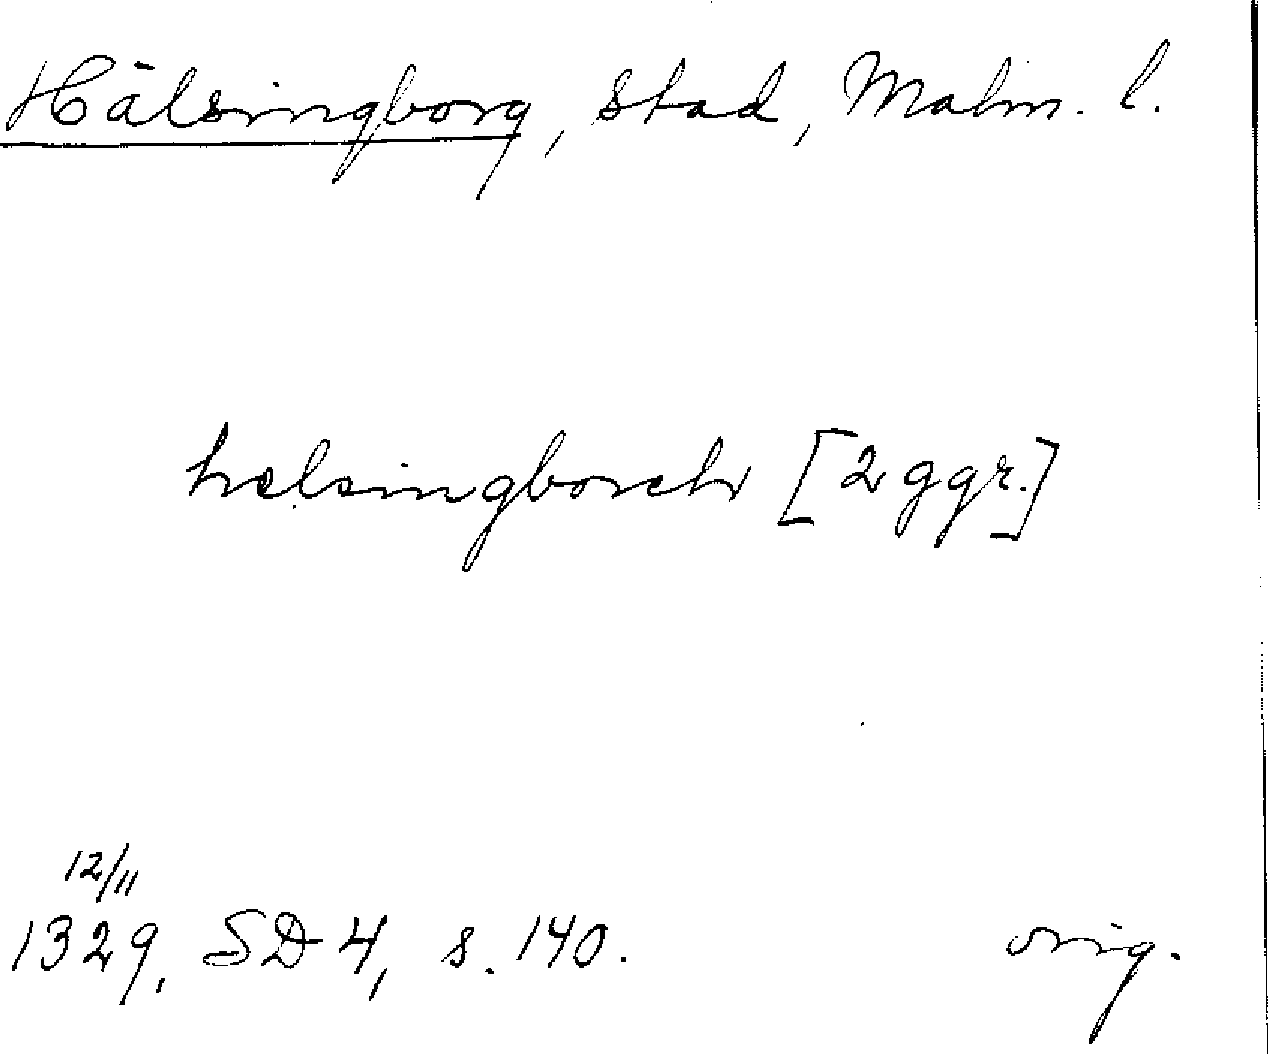 Hälsingborg, stad, Malm. l.
helsingborch [2 ggr.]
12/11
1329, SD 4, s. 140. orig.